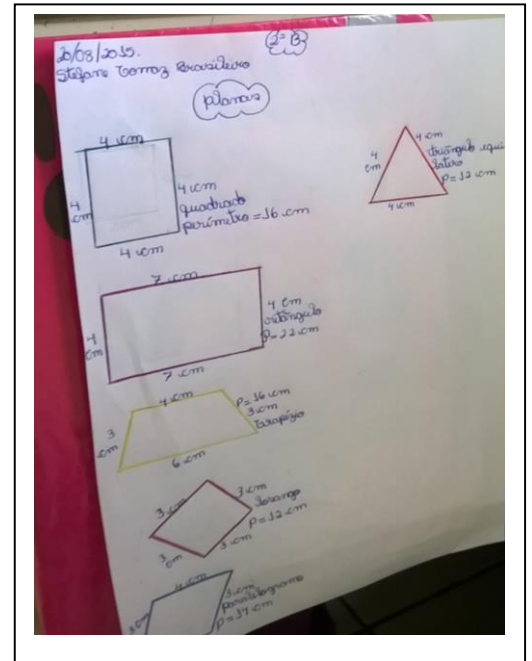 20/08/2015.
2ª B
Stefane Tomaz Brasileiro
Planas
4 cm
4 cm
4 cm
quadrado
perímetro = 16 cm
4 cm
4 cm
4 cm
triângulo equi
látero
P = 12 cm
4 cm
7 cm
4 cm
4 cm
retângulo
P = 22 cm
7 cm
4 cm
P = 16 cm
3 cm
3 cm
Tarapézio
6 cm
3 cm
3 cm
Losango
P = 12 cm
3 cm
3 cm
4 cm
3 cm
3 cm
paralelogramo
P = 14 cm